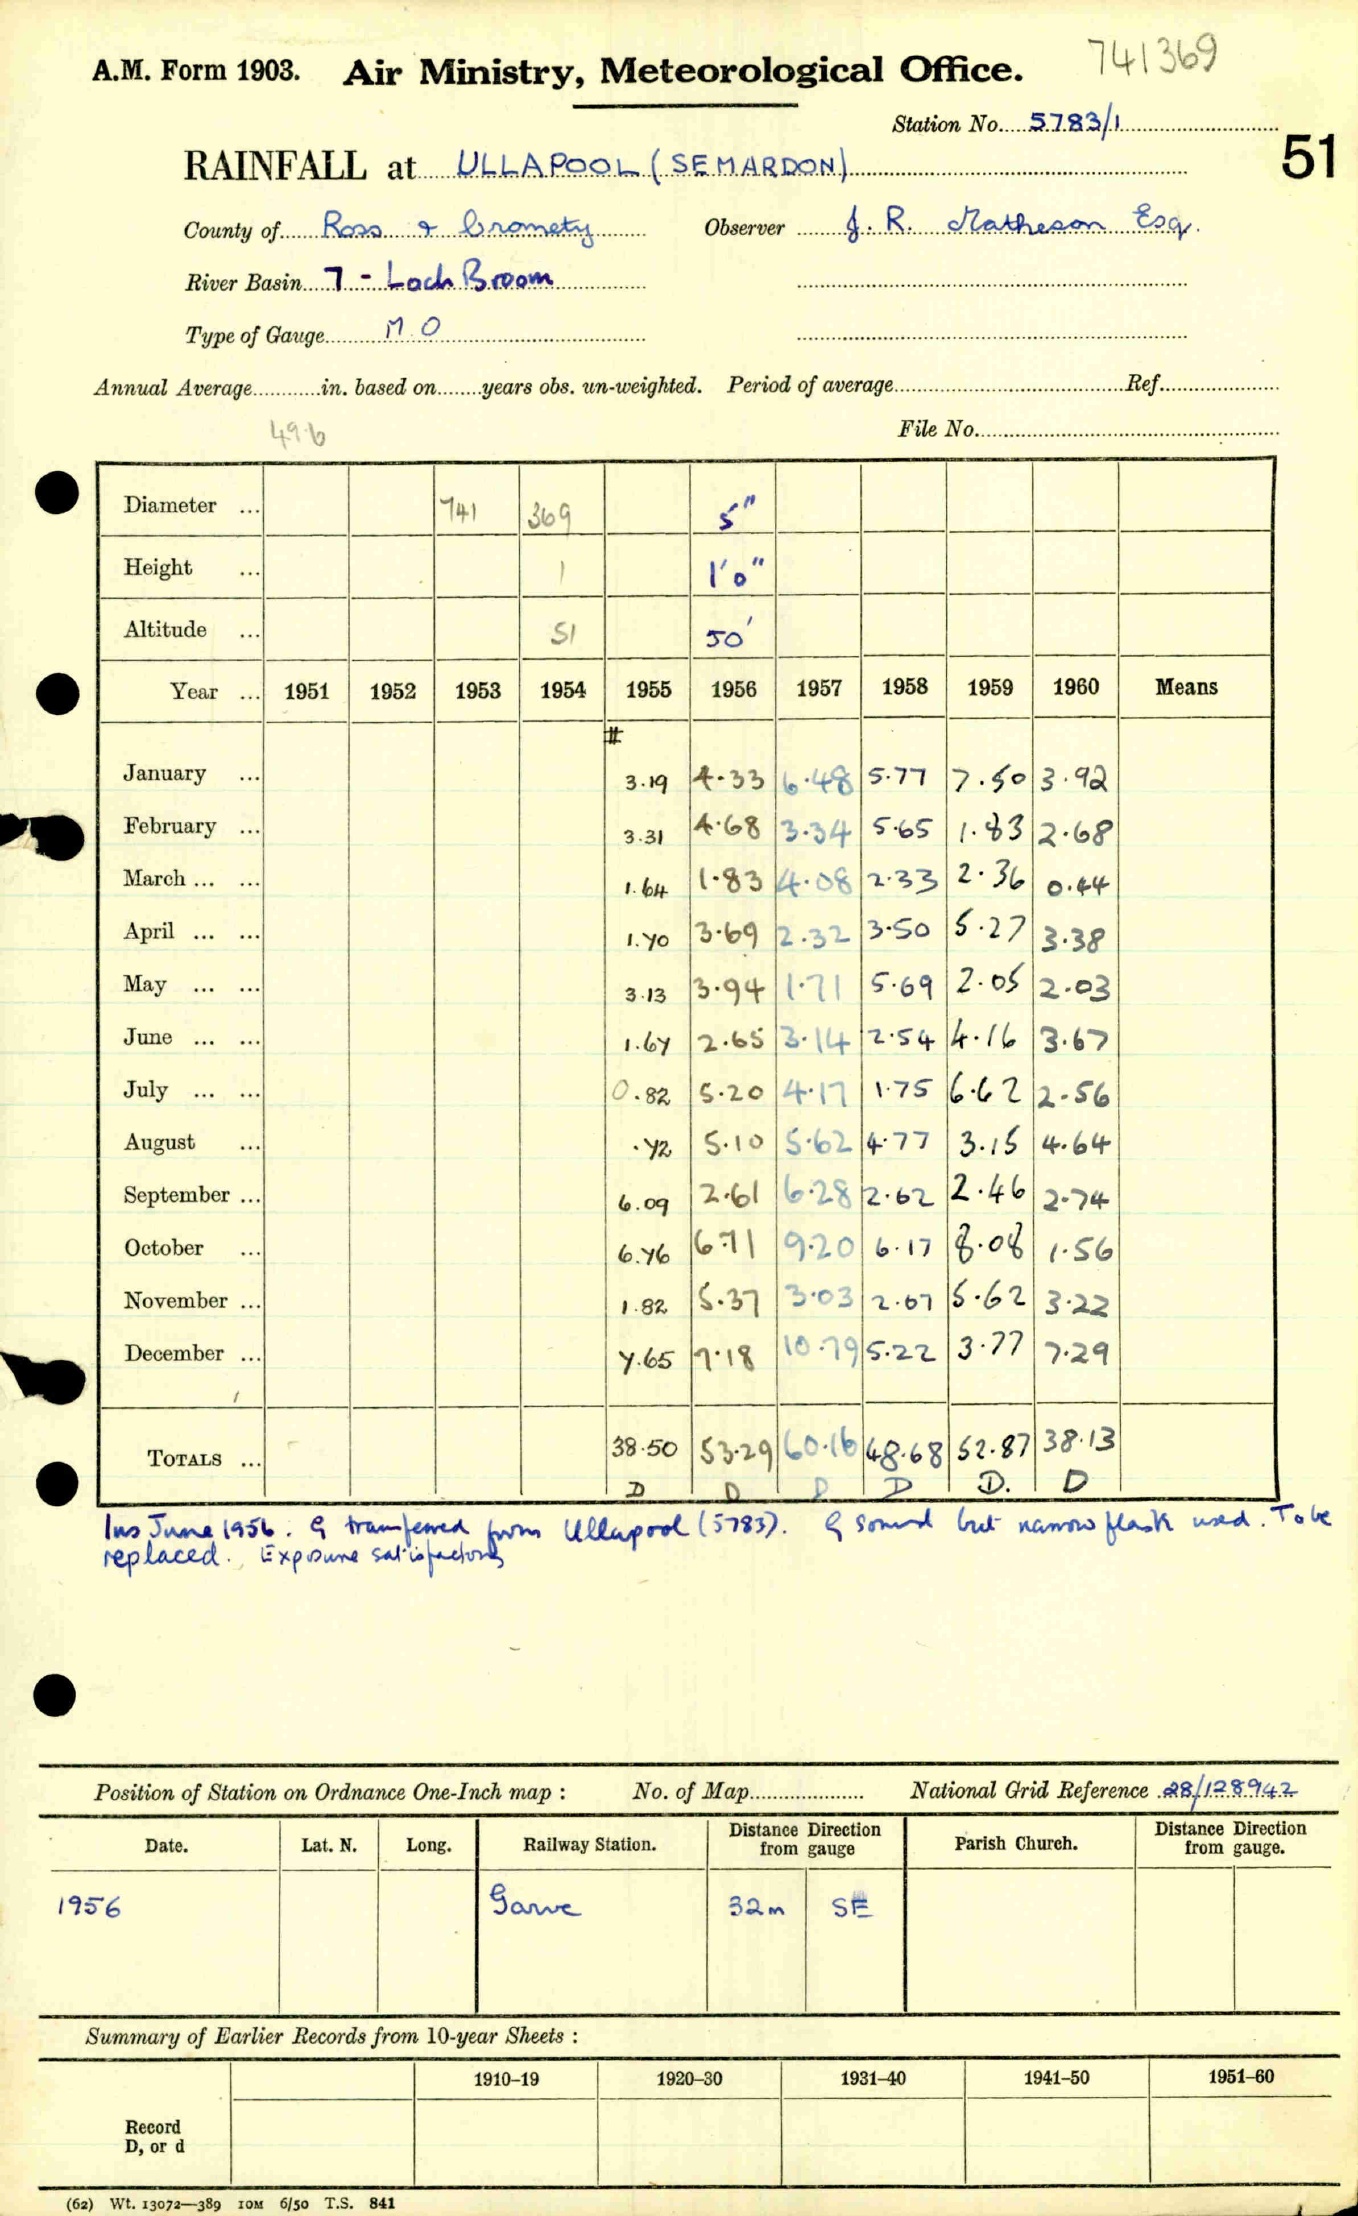 741369
A.M. Form 1903. Air Ministry, Meteorological Office.
Station No. 5783/1
51
RAINFALL at ULLAPOOL (SEMARDON)
County of Ross & Cromety Observer J. R. Matheson Esq.
River Basin 7 - Loch Broom
Type of Gauge M.O
Annual Average in. based on years obs. un-weighted. Period of average Ref.
49.6
File No.
Diameter ... 741 369 5"
Height ... 1 1'0"
Altitude ... 51 50'
Year ... 1951 1952 1953 1954 1955 1956 1957 1958 1959 1960 Means
#
January ... 3.19 4.33 6.48 5.77 7.50 3.92
February ... 3.31 4.68 3.34 5.65 1.83 2.68
March ... ... 1.64 1.83 4.08 2.33 2.36 0.44
April ... ... 1.70 3.69 2.32 3.50 5.27 3.38
May ... ... 3.13 3.94 1.71 5.69 2.05 2.03
June ... ... 1.67 2.65 3.14 2.54 4.16 3.67
July ... ... 0.82 5.20 4.17 1.75 6.62 2.56
August ... .72 5.10 5.62 4.77 3.15 4.64
September ... 6.09 2.61 6.28 2.62 2.46 2.74
October ... 6.76 6.71 9.20 6.17 8.08 1.56
November ... 1.82 5.37 3.03 2.07 5.62 3.22
December ... 7.65 7.18 10.79 5.22 3.77 7.29
TOTALS ... 38.50 53.29 60.16 48.68 52.87 38.13
D D D D D. D
Ins June 1956. G transferred from Ullapool (5783). G sound but narrow flask used. To be
replaced. Exposure satisfactory
Position of Station on Ordnance One-Inch map : No. of Map National Grid Reference 28/128942
Date. Lat. N. Long. Railway Station. Distance Direction from gauge Parish Church. Distance Direction from gauge.
1956 Garve 32m SE
Summary of Earlier Records from 10-year Sheets :
1910–19 1920–30 1931–40 1941–50 1951–60
Record
D, or d
(62) Wt. 13072—389 10M 6/50 T.S. 841